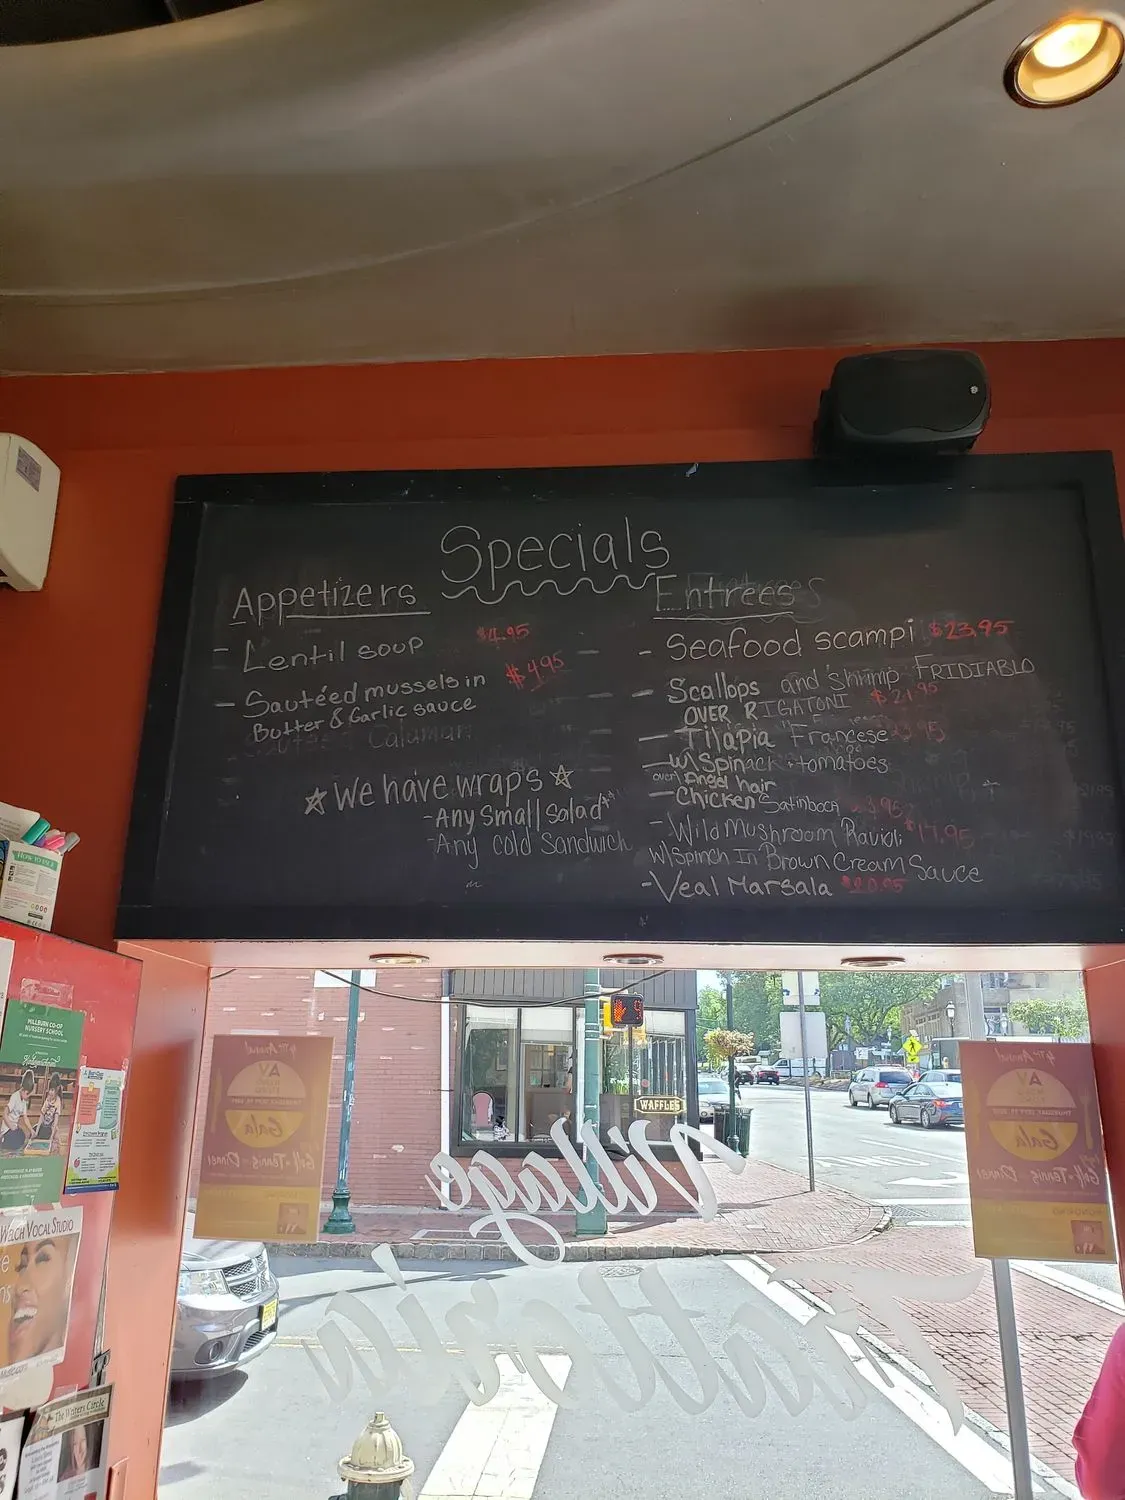 Specials
Appetizers
- Lentil soup $4.95
- Sautéed mussels in $4.95
Butter & Garlic sauce
Calamari
☆ We have wrap's ☆
- Any Small Salad
- Any cold Sandwich
Entrees
- Seafood scampi $23.95
- Scallops and Shrimp FRIDIABLO
OVER RIGATONI $21.95
- Tilapia Francese
W\ Spinach tomatoes
over Angel hair
- Chicken
- Wild Mushroom Ravioli
W\ Spinch In Brown Cream Sauce
- Veal Marsala $20.95
HOW TO USE
MILLBURN CO-OP
NURSERY SCHOOL
WELCH VOCAL STUDIO
The Writers Circle
4TH Annual
Gala
Golf - Tennis - Dinner
WAFFLES
Village
Trattoria
4TH Annual
Gala
Golf - Tennis - Dinner